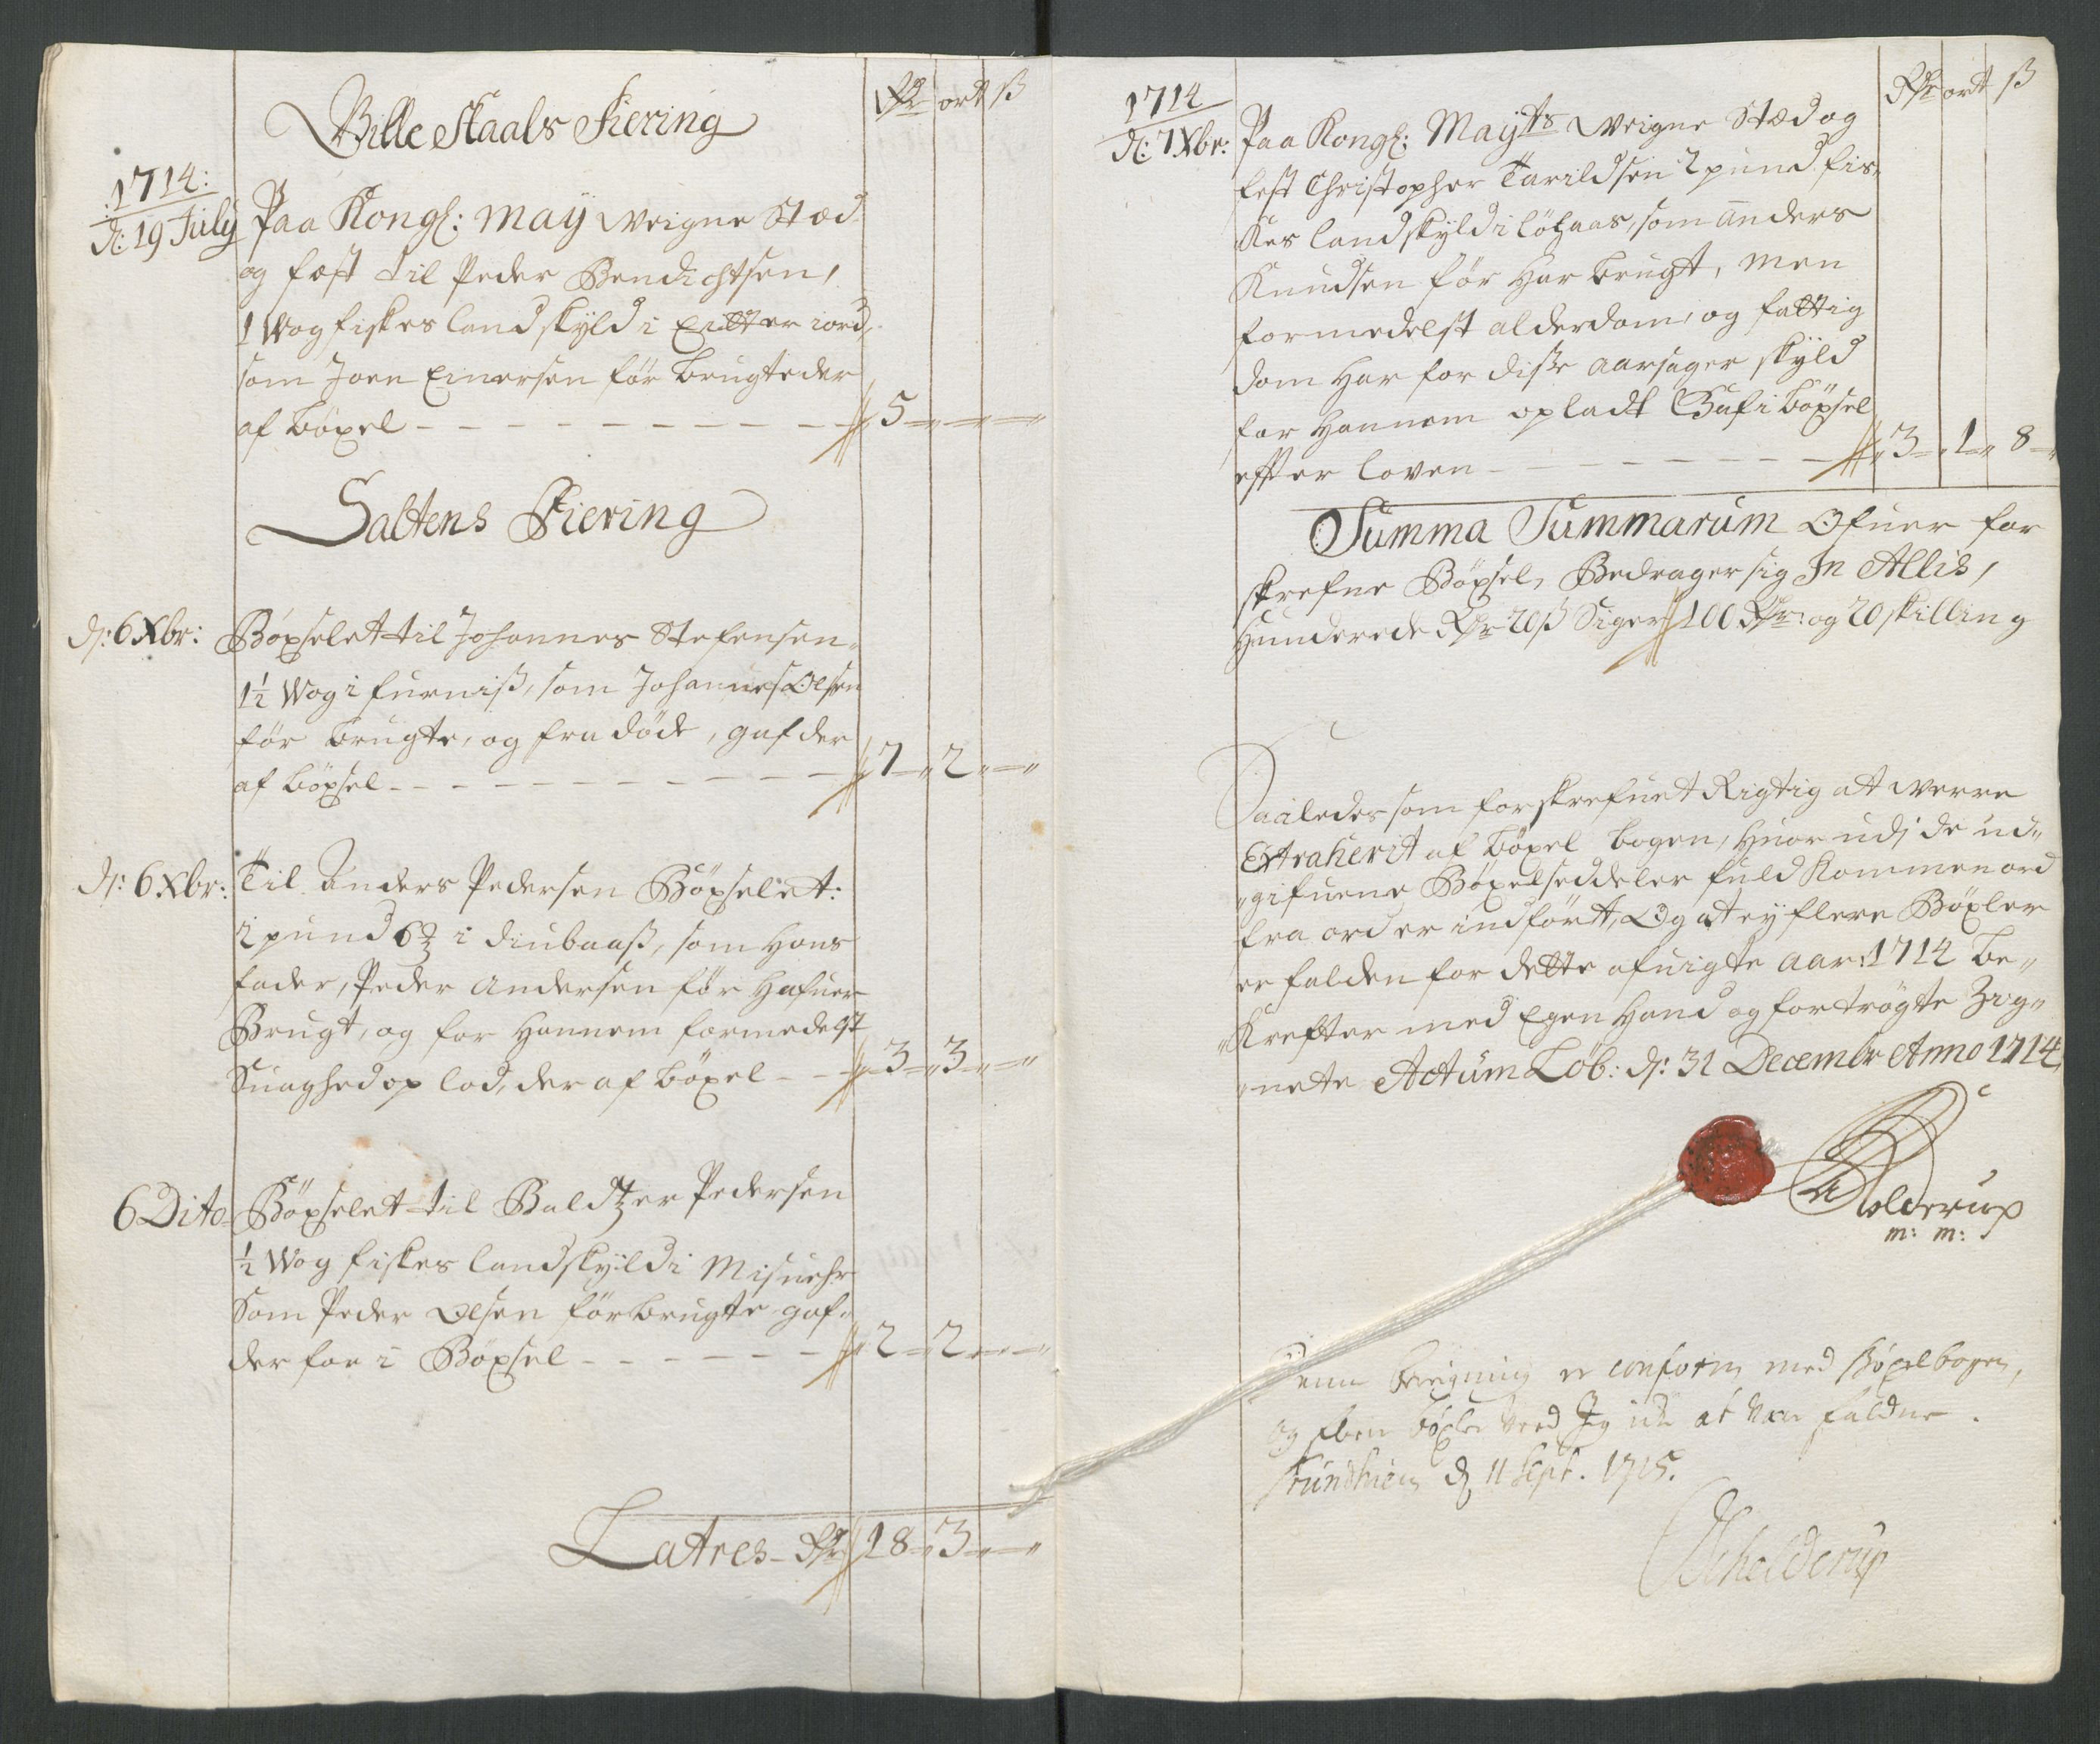 Bille Skaals Fiering
Rdr ort ß
1714:
d: 19 July Paa Kongl: May Weigne Sted
og fest til Peder Bendichtsen,
1 Wog fiskes landskyld i Eitter iord,
som Joen Einersen før brugte der
af böxel - - - 5 - - -
Saltens Fiering
d: 6 Xbr: Böxselet til Johannes Stefensen
1½ Wog i furniß, som Johannes Olsen
før brugte, og fra döde, gaf der
af böxsel - - - 7 - 2 - -
d: 6 Xbr: Til Anders Pedersen Böxselet:
2 pund 6 ℔ i diubaaß, som Hans
fader, Peder Andersen før hafuer
Brugt, og for hannem formedelst
Suaghed op lod, der af böxel - - 3 - 3 - -
6 Dito Böxselet til Baldtzer Pedersen
½ Wog fiskes landskyld i Misuehr
Som Peder Olsen før brugte gaf
der for i Böxsel - - - 2 - 2 - -
Latres - Rdr 18 - 3 - -
1714
Rdr ort ß
d: 7 Xbr: Paa Kongl: Mayts Weigne Sted og
fest Christopher Tarildsen 2 pund fis-
kes landskyld i löhaas, som Anders
Knudsen før har brugt, men
formedelst alderdom, og fattig
dom har for disse aarsager skyld
for hannem opladt Gaf i böxsel
effter loven - - - 3 - 1 - 8 -
Summa Summarum Ofuer for
skrefne Böxsel, Bedrager sig In Allis,
Hunderede Rdr 20 ß Siger 100 Rdr: og 20 skilling
Saaledes som forskrefuet Rigtig at werre
Extraherit af böxel bogen, huor udj de ud-
gifuene Böxelseddeler fuldkommen ord
fra ord er indført, Og at ey flere Böxler
er falden for dette afuigte Aar: 1714 be-
krefter med Egen Hand og fortrögte Zig-
nete Actum Löb: d: 31 Decembr Anno 1714
Adelderup
m: m:
denne beregning er conform med Böxelbogen,
og flere böxler veed Jeg icke at være faldne.
Trundhiem d 11 Sept. 1715.
Schelderup